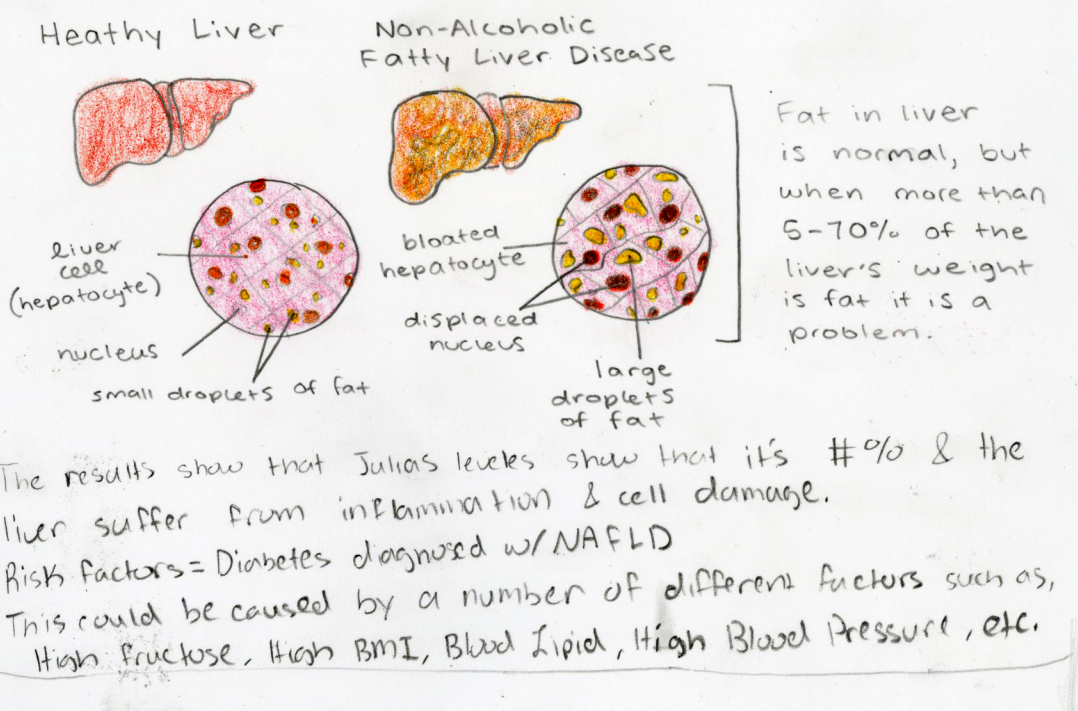 Heathy Liver
Non-Alcoholic
Fatty Liver Disease
liver
cell
(hepatocyte)
nucleus
small droplets of fat
bloated
hepatocyte
displaced
nucleus
large
droplets
of fat
Fat in liver
is normal, but
when more than
5-70% of the
liver's weight
is fat it is a
problem.
The results show that Julias leveles show that it's #% & the
liver suffer from inflammation & cell damage.
Risk factors= Diabetes diagnosed w/ NAFLD
This could be caused by a number of different factors such as,
High fructose, High BMI, Blood Lipid, High Blood Pressure, etc.